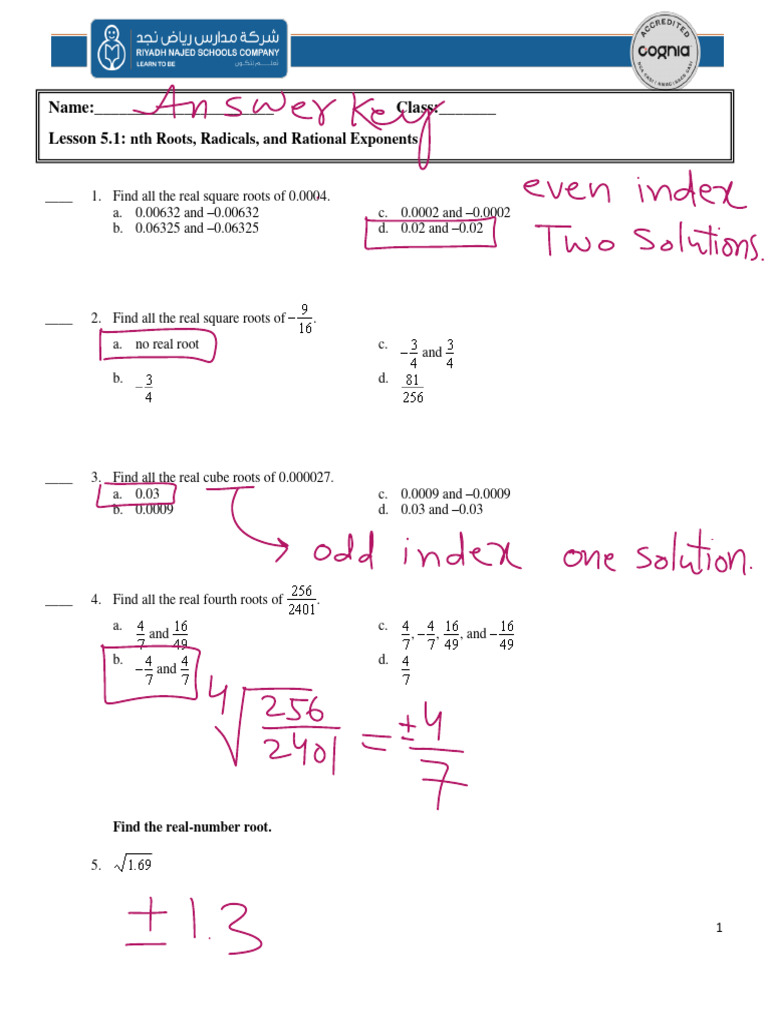 شركة مدارس رياض نجد
RIYADH NAJED SCHOOLS COMPANY
LEARN TO BE نتعلـــم لنكون
ACCREDITED
cognia
Name:_______________________ Class:_______
Answer Key
Lesson 5.1: nth Roots, Radicals, and Rational Exponents
____ 1. Find all the real square roots of 0.0004.
a. 0.00632 and –0.00632 c. 0.0002 and –0.0002
b. 0.06325 and –0.06325 d. 0.02 and –0.02
even index
Two Solutions.
____ 2. Find all the real square roots of –9/16.
a. no real root c. –3/4 and 3/4
b. –3/4 d. 81/256
____ 3. Find all the real cube roots of 0.000027.
a. 0.03 c. 0.0009 and –0.0009
b. 0.0009 d. 0.03 and –0.03
odd index one solution.
____ 4. Find all the real fourth roots of 256/2401.
a. 4/7 and 16/49 c. 4/7, –4/7, 16/49, and –16/49
b. –4/7 and 4/7 d. 4/7
4√256/2401 = ±4/7
Find the real-number root.
5. √1.69
±1.3
1